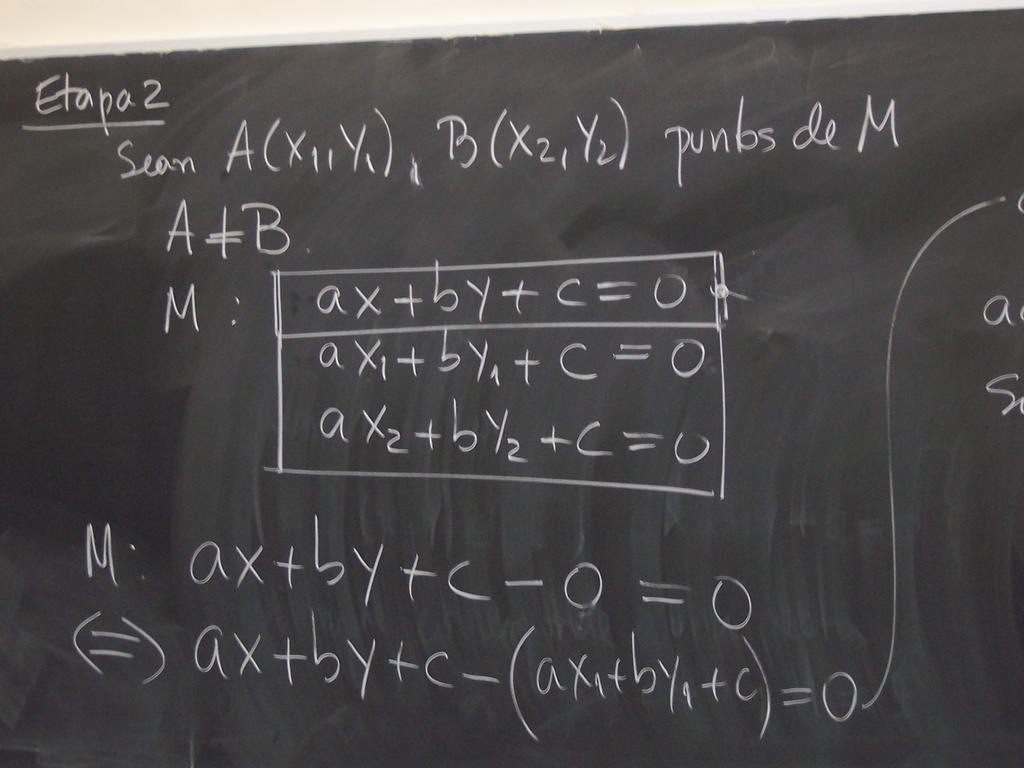 Etapa 2
Sean A(x₁,y₁), B(x₂,y₂) puntos de M
A ≠ B.
M : ax+by+c=0
ax₁+by₁+c=0
ax₂+by₂+c=0
M: ax+by+c-0=0
⇔ ax+by+c-(ax₁+by₁+c)=0